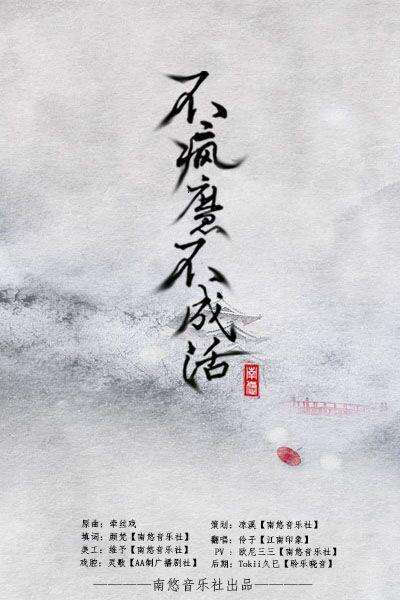 不疯魔不成活
南悠
原曲：牵丝戏
策划：凉溪【南悠音乐社】
填词：颜梵【南悠音乐社】
翻唱：伶子【江南印象】
美工：维予【南悠音乐社】
PV：欧尼三三【南悠音乐社】
戏腔：灵歌【AA制广播剧社】
后期：Tokii久巳【聆乐晓音】
————南悠音乐社出品————